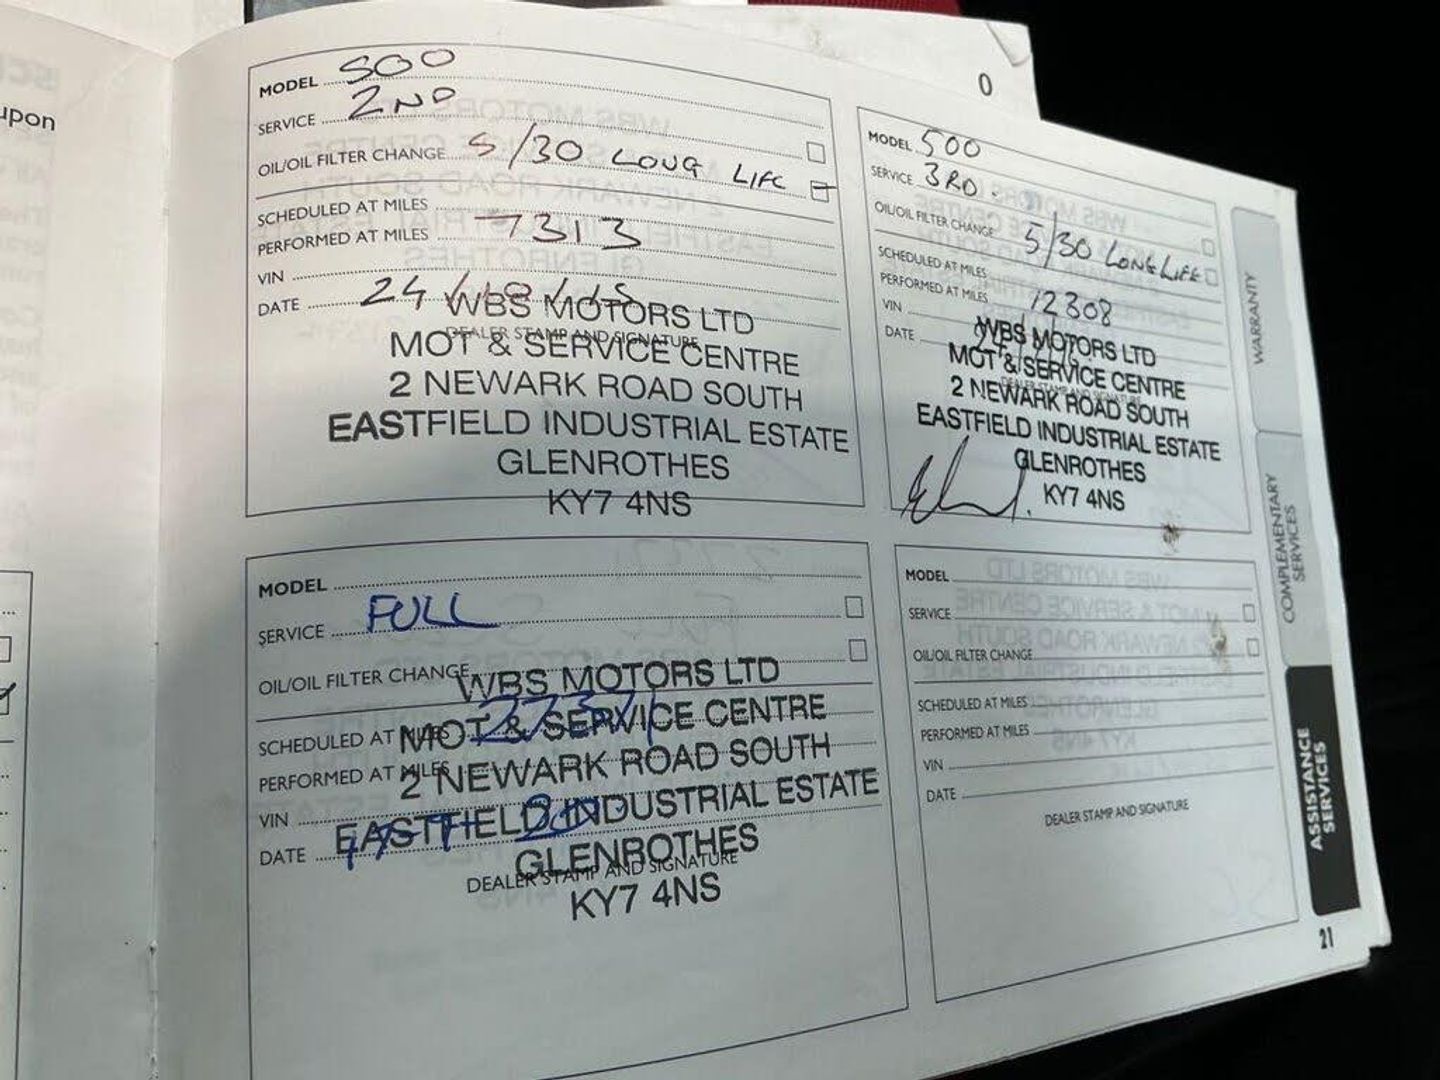 upon
0
MODEL 500
SERVICE 2ND
OIL/OIL FILTER CHANGE 5/30 LONG LIFE
SCHEDULED AT MILES
PERFORMED AT MILES 7313
VIN
DATE 24
WBS MOTORS LTD
DEALER STAMP AND SIGNATURE
MOT & SERVICE CENTRE
2 NEWARK ROAD SOUTH
EASTFIELD INDUSTRIAL ESTATE
GLENROTHES
KY7 4NS
MODEL 500
SERVICE 3RD
OIL/OIL FILTER CHANGE 5/30 LONGLIFE
SCHEDULED AT MILES
PERFORMED AT MILES 12308
VIN
DATE
WBS MOTORS LTD
MOT & SERVICE CENTRE
DEALER STAMP AND SIGNATURE
2 NEWARK ROAD SOUTH
EASTFIELD INDUSTRIAL ESTATE
GLENROTHES
KY7 4NS
MODEL
SERVICE FULL
OIL/OIL FILTER CHANGE
WBS MOTORS LTD
SCHEDULED AT MILES
MOT & SERVICE CENTRE
PERFORMED AT MILES
2 NEWARK ROAD SOUTH
VIN
EASTFIELD INDUSTRIAL ESTATE
DATE
GLENROTHES
DEALER STAMP AND SIGNATURE
KY7 4NS
MODEL
SERVICE
OIL/OIL FILTER CHANGE
SCHEDULED AT MILES
PERFORMED AT MILES
VIN
DATE
DEALER STAMP AND SIGNATURE
WARRANTY
COMPLEMENTARY
SERVICES
ASSISTANCE
SERVICES
21